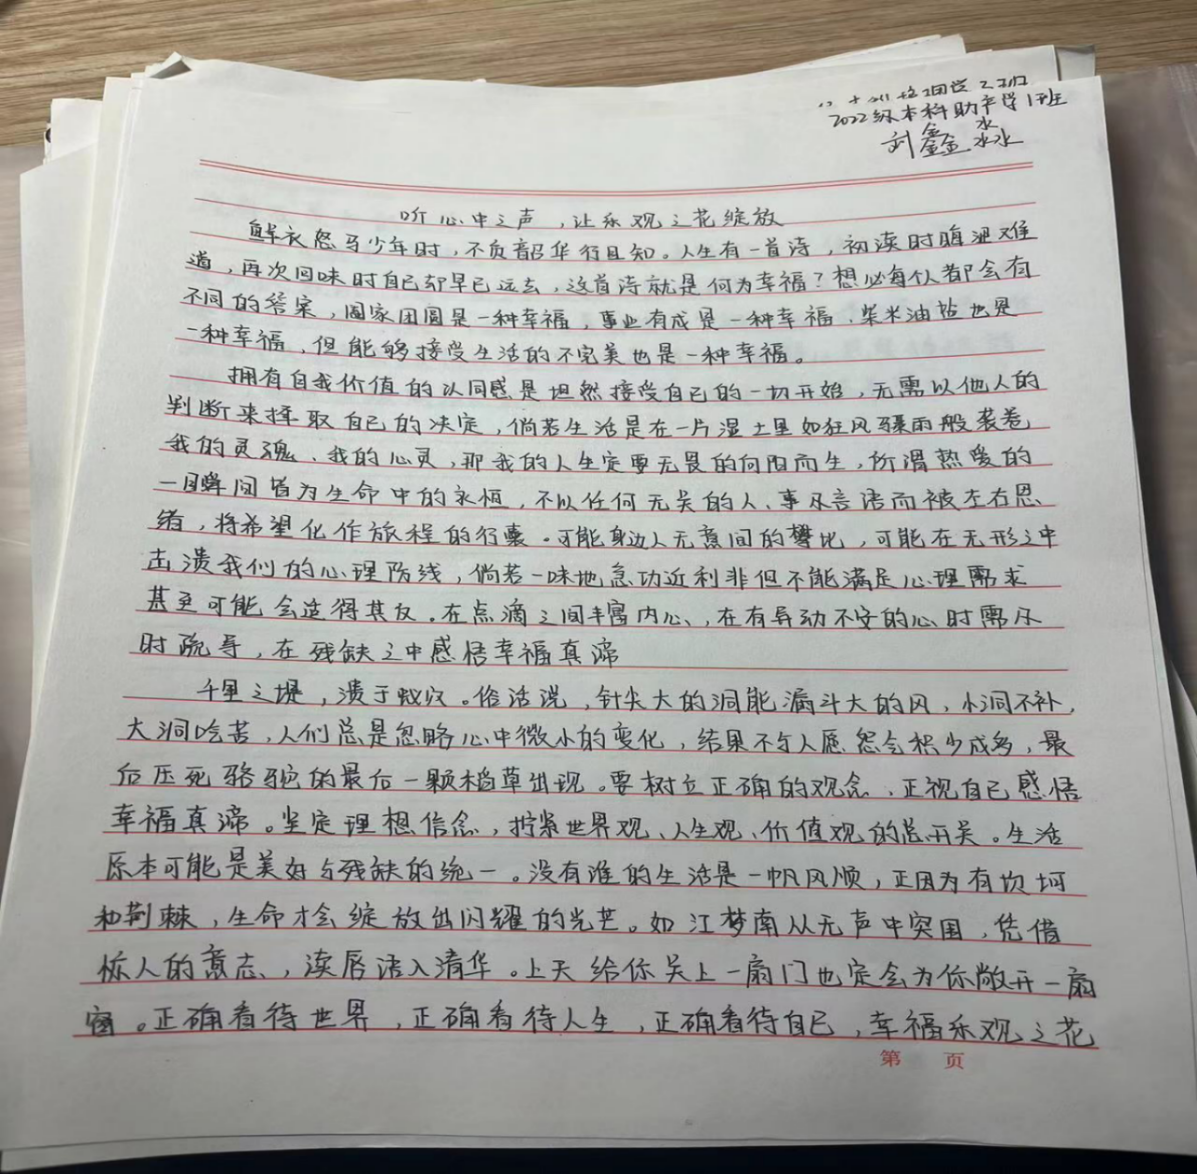 2022级本科助产学1班
刘鑫淼
听心中之声，让乐观之花绽放
鲜衣怒马少年时，不负韶华行且知。人生有一首诗，初读时晦涩难
道，再次回味时自己却早已远去，这首诗就是何为幸福？想必每个人都会有
不同的答案，阖家团圆是一种幸福，事业有成是一种幸福，柴米油盐也是
一种幸福，但能够接受生活的不完美也是一种幸福。
拥有自我价值的认同感是坦然接受自己的一切开始，无需以他人的
判断来择取自己的决定，倘若生活是在一片湿土里如狂风骤雨般袭卷
我的灵魂、我的心灵，那我的人生定要无畏的向阳而生，所谓热爱的
一瞬间皆为生命中的永恒，不以任何无关的人、事及言语而被左右思
绪，将希望化作旅程的行囊。可能身边人无意间的攀比，可能在无形之中
击溃我们的心理防线，倘若一味地急功近利非但不能满足心理需求
甚至可能会适得其反。在点滴之间丰富内心，在有异动不安的心时需及
时疏导，在残缺之中感悟幸福真谛
千里之堤，溃于蚁穴。俗话说，针尖大的洞能漏斗大的风，小洞不补，
大洞吃苦，人们总是忽略心中微小的变化，结果不与人愿 怨会积少成多，最
后压死骆驼的最后一颗稻草出现。要树立正确的观念、正视自己感悟
幸福真谛。坚定理想信念，拧紧世界观、人生观、价值观的总开关。生活
原本可能是美好与残缺的统一。没有谁的生活是一帆风顺，正因为有坎坷
和荆棘，生命才会绽放出闪耀的光芒。如江梦南从无声中突围，凭借
惊人的意志，读唇语入清华。上天给你关上一扇门也定会为你敞开一扇
窗。正确看待世界，正确看待人生，正确看待自己，幸福乐观之花
第 页